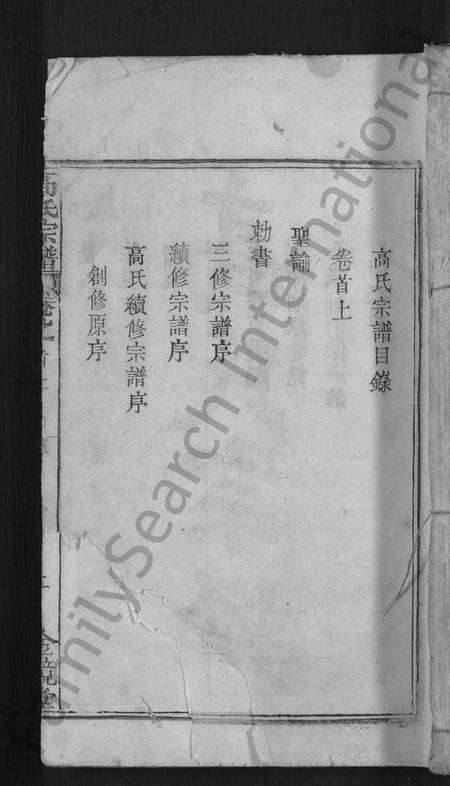 高氏宗譜目錄
卷首上
聖諭
勅書
三修宗譜序
續修宗譜序
高氏續修宗譜序
創修原序
高氏宗譜
卷之
FamilySearch International